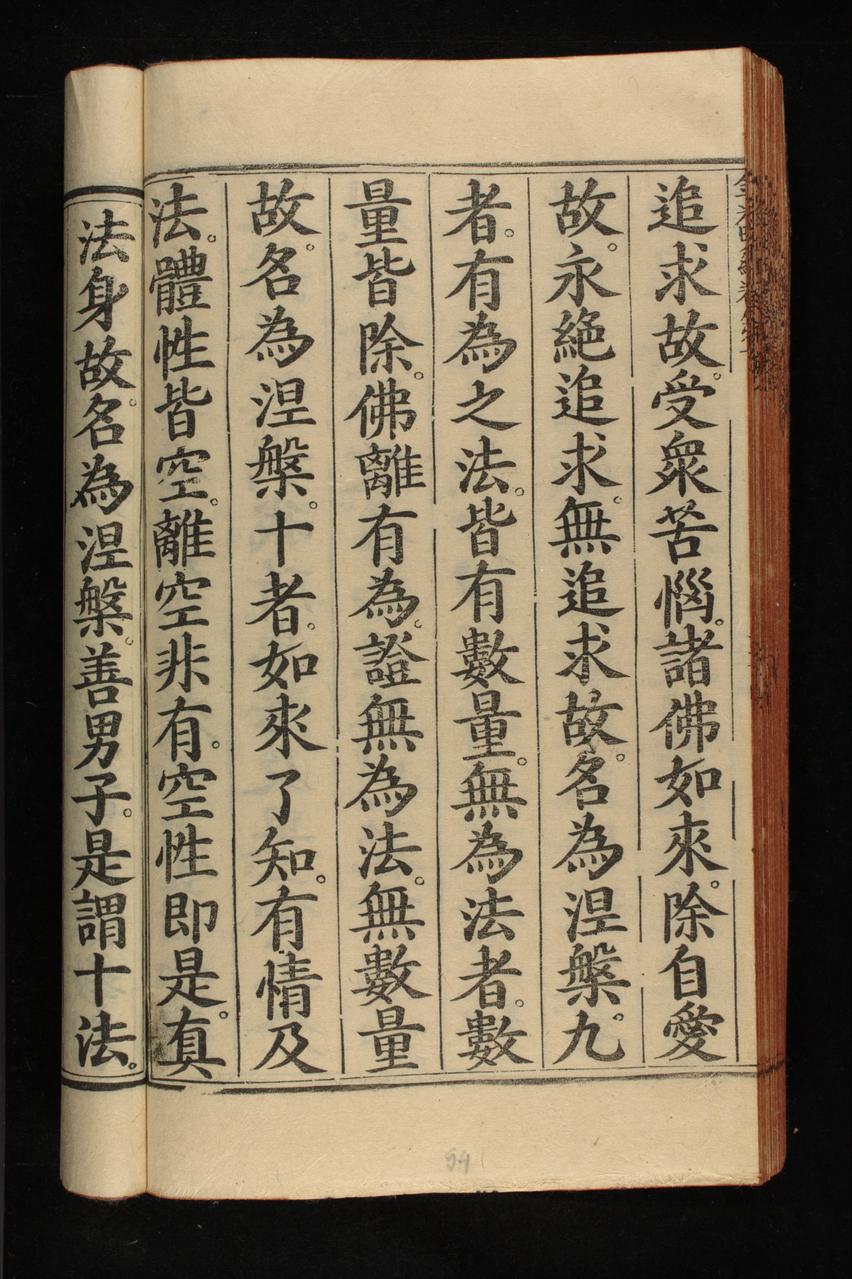 追求故。受衆苦惱。諸佛如來。除自愛
故。永絶追求。無追求故。名為涅槃。九
者。有為之法。皆有數量。無為法者。數
量皆除。佛離有為。證無為法。無數量
故。名為涅槃。十者。如來了知。有情及
法。體性皆空。離空非有。空性即是。真
法身故。名為涅槃。善男子。是謂十法。
54